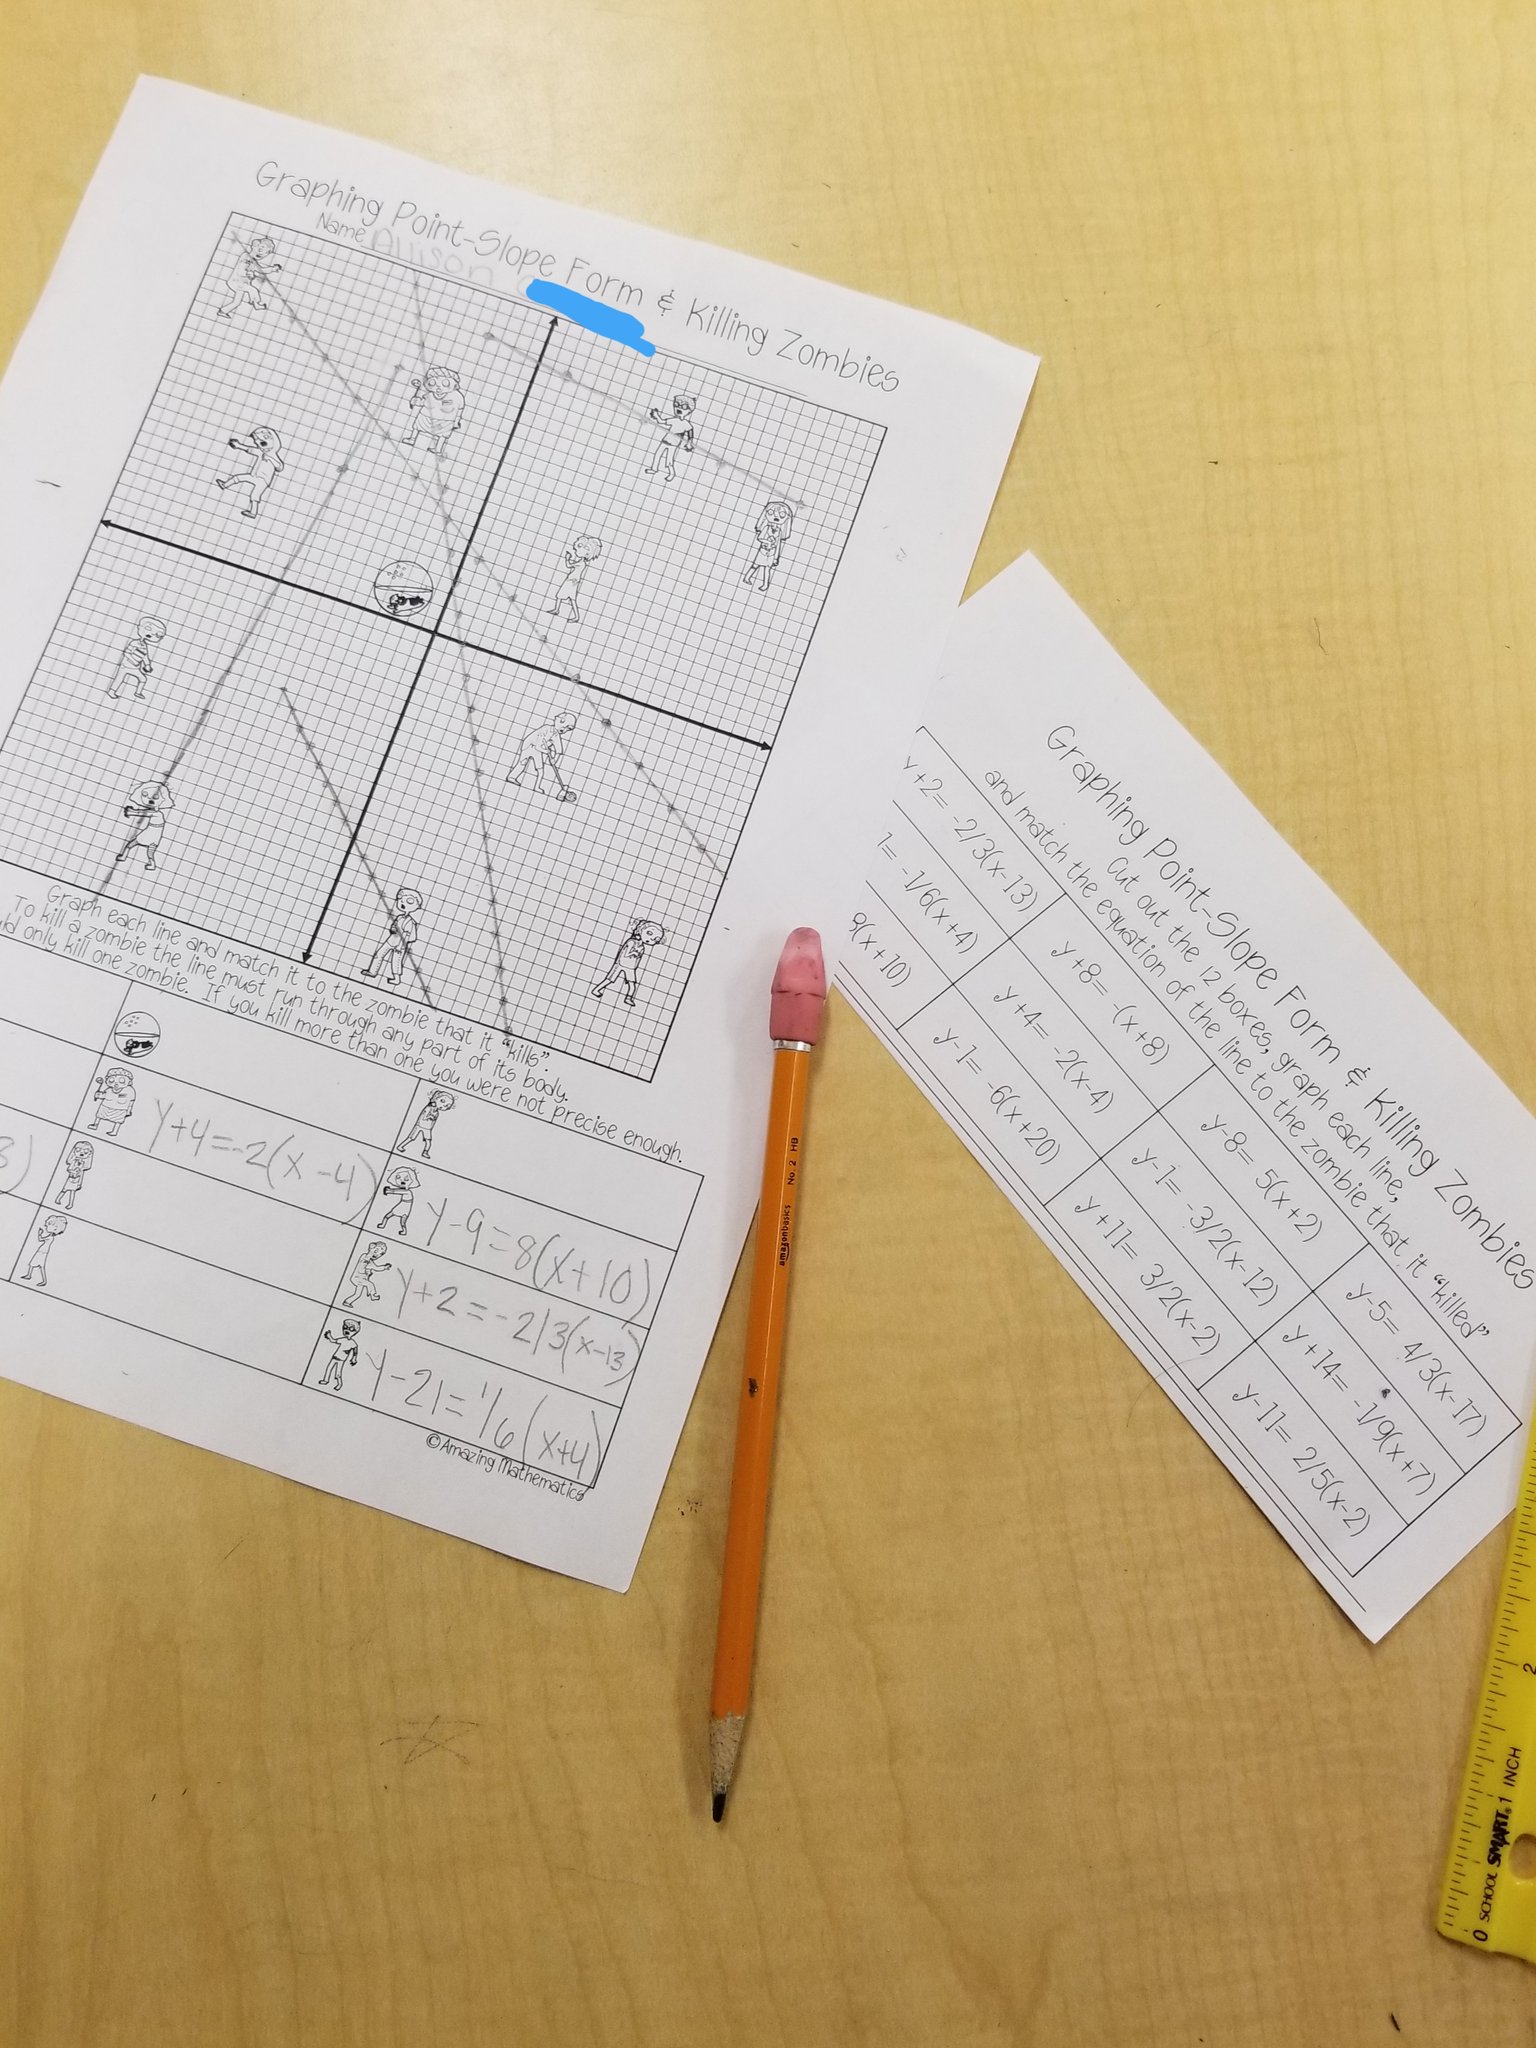 Graphing Point-Slope Form & Killing Zombies
Name Allison
Graph each line and match it to the zombie that it "kills".
To kill a zombie the line must run through any part of its body.
only kill one zombie. If you kill more than one you were not precise enough.
y+4=-2(x-4)
y-9=8(x+10)
y+2=-2/3(x-13)
y-21=1/6(x+4)
©Amazing Mathematics
Graphing Point-Slope Form & Killing Zombies
Cut out the 12 boxes, graph each line,
and match the equation of the line to the zombie that it "killed"
y+2= -2/3(x-13)
y+8= -(x+8)
y-8= 5(x+2)
y-5= 4/3(x-17)
1= -1/6(x+4)
y+4= -2(x-4)
y-1= -3/2(x-12)
y+14= -1/9(x+7)
(x+10)
y-1= -6(x+20)
y+11= 3/2(x-2)
y-11= 2/5(x-2)
amazonbasics No. 2 HB
0 SCHOOL SMART® 1 INCH 2